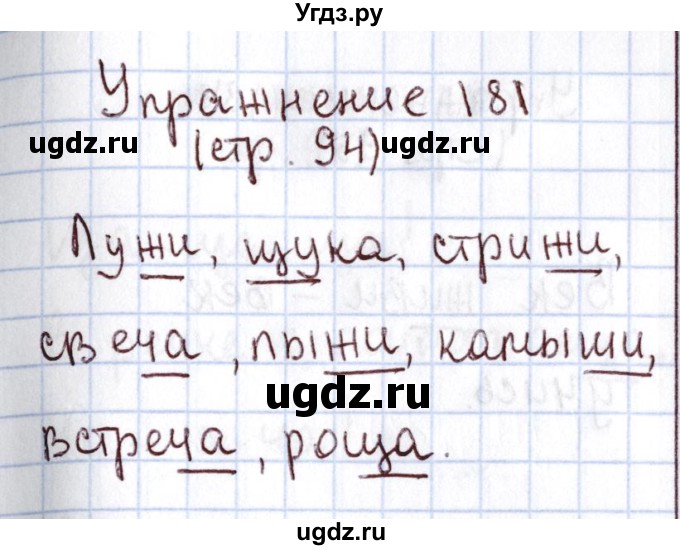 Угдз.ру
Упражнение 181
ugdz.ru (стр. 94) ugdz.ru
Лужи, щука, стрижи,
свеча, лыжи, камыши,
ugdz.ru
встреча, роща.
ugdz.ru